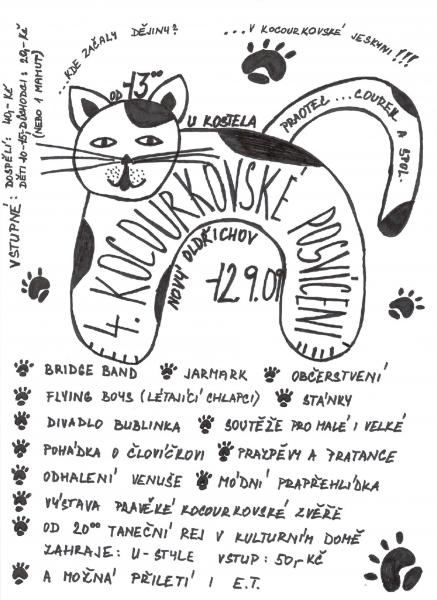 ...KDE ZAČALY DĚJINY?
...V KOCOURKOVSKÉ JESKYNI!!!
VSTUPNÉ: DOSPĚLÍ: 40,- Kč
DĚTI 10-15, DŮCHODCI: 20,- Kč
(NEBO 1 MAMUT)
OD 13°°
U KOSTELA
PRAOTEC...COUREK A SPOL.
4. KOCOURKOVSKÉ POSVÍCENÍ
NOVÝ OLDŘICHOV
12.9.09
BRIDGE BAND JARMARK OBČERSTVENÍ
FLYING BOYS (LÉTAJÍCÍ CHLAPCI) STÁNKY
DIVADLO BUBLINKA SOUTĚŽE PRO MALÉ I VELKÉ
POHÁDKA O ČLOVÍČKOVI PRAZPĚVY A PRATANCE
ODHALENÍ VENUŠE MÓDNÍ PRAPŘEHLÍDKA
VÝSTAVA PRAVĚKÉ KOCOURKOVSKÉ ZVĚŘE
OD 20°° TANEČNÍ REJ V KULTURNÍM DOMĚ
ZAHRAJE: U-STYLE VSTUP: 50,- Kč
A MOŽNÁ PŘILETÍ I E.T.